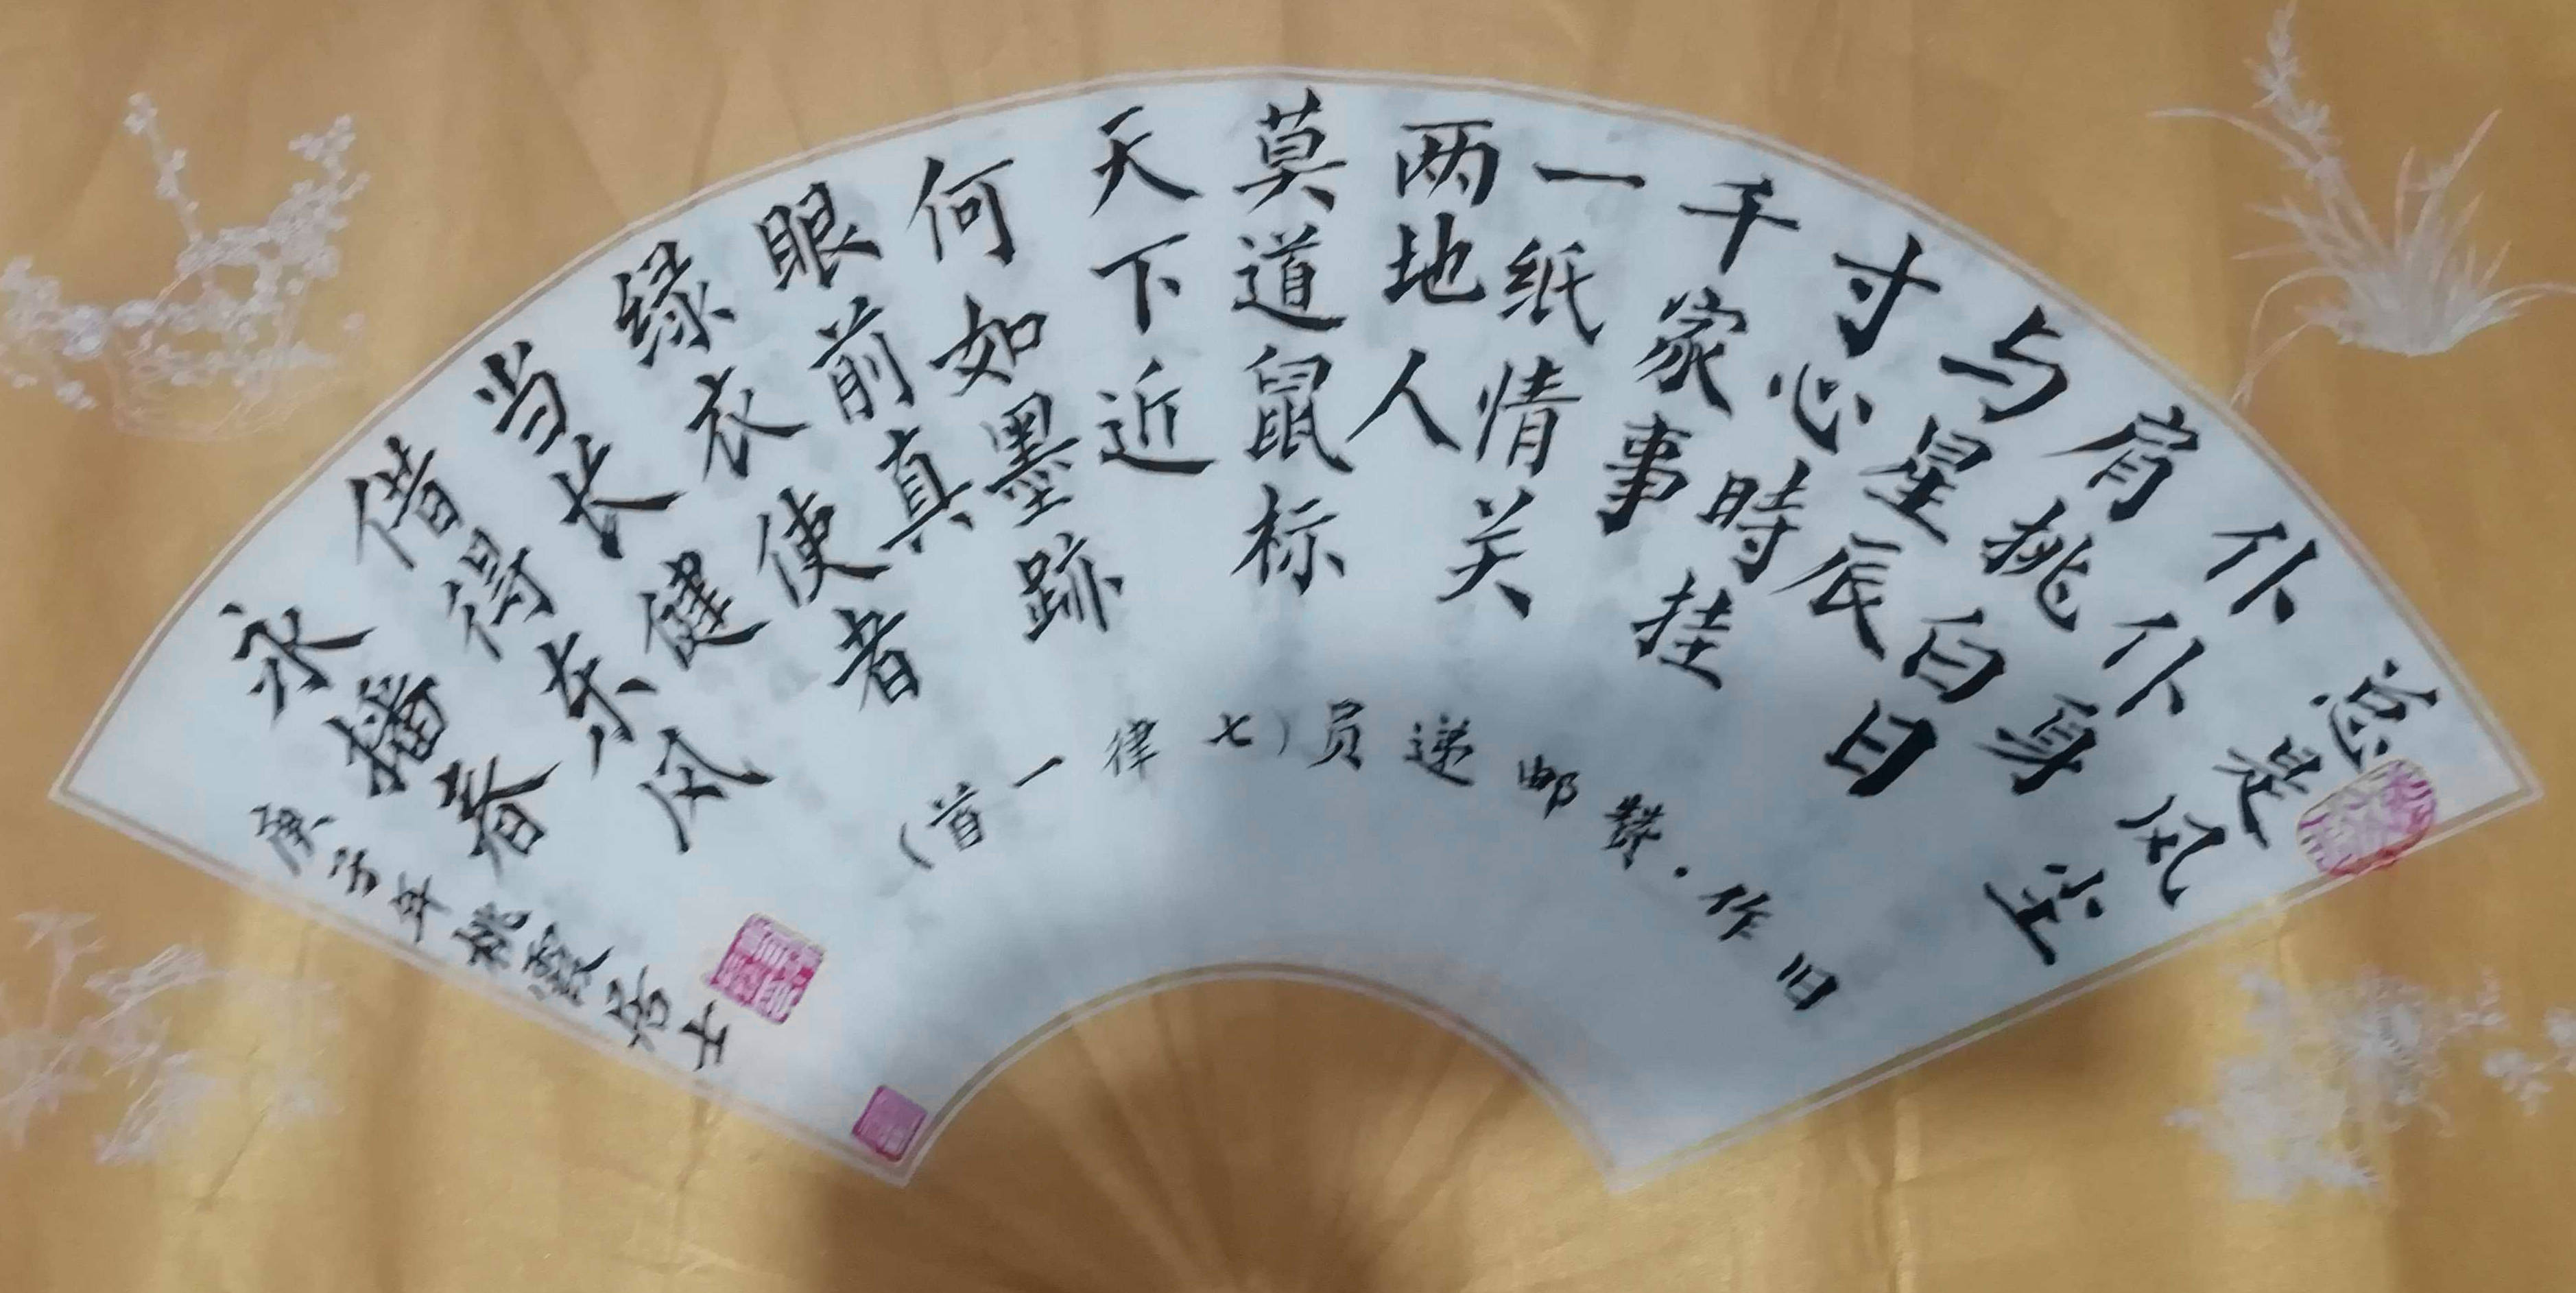 总是风尘
仆仆身
肩挑白日
与星辰
寸心時挂
千家事
一纸情关
两地人
莫道鼠标
天下近
何如墨跡
眼前真
绿衣使者
当长健
借得东风
永播春
旧作·赞邮递员(七律一首)
庚子年桃霞居士